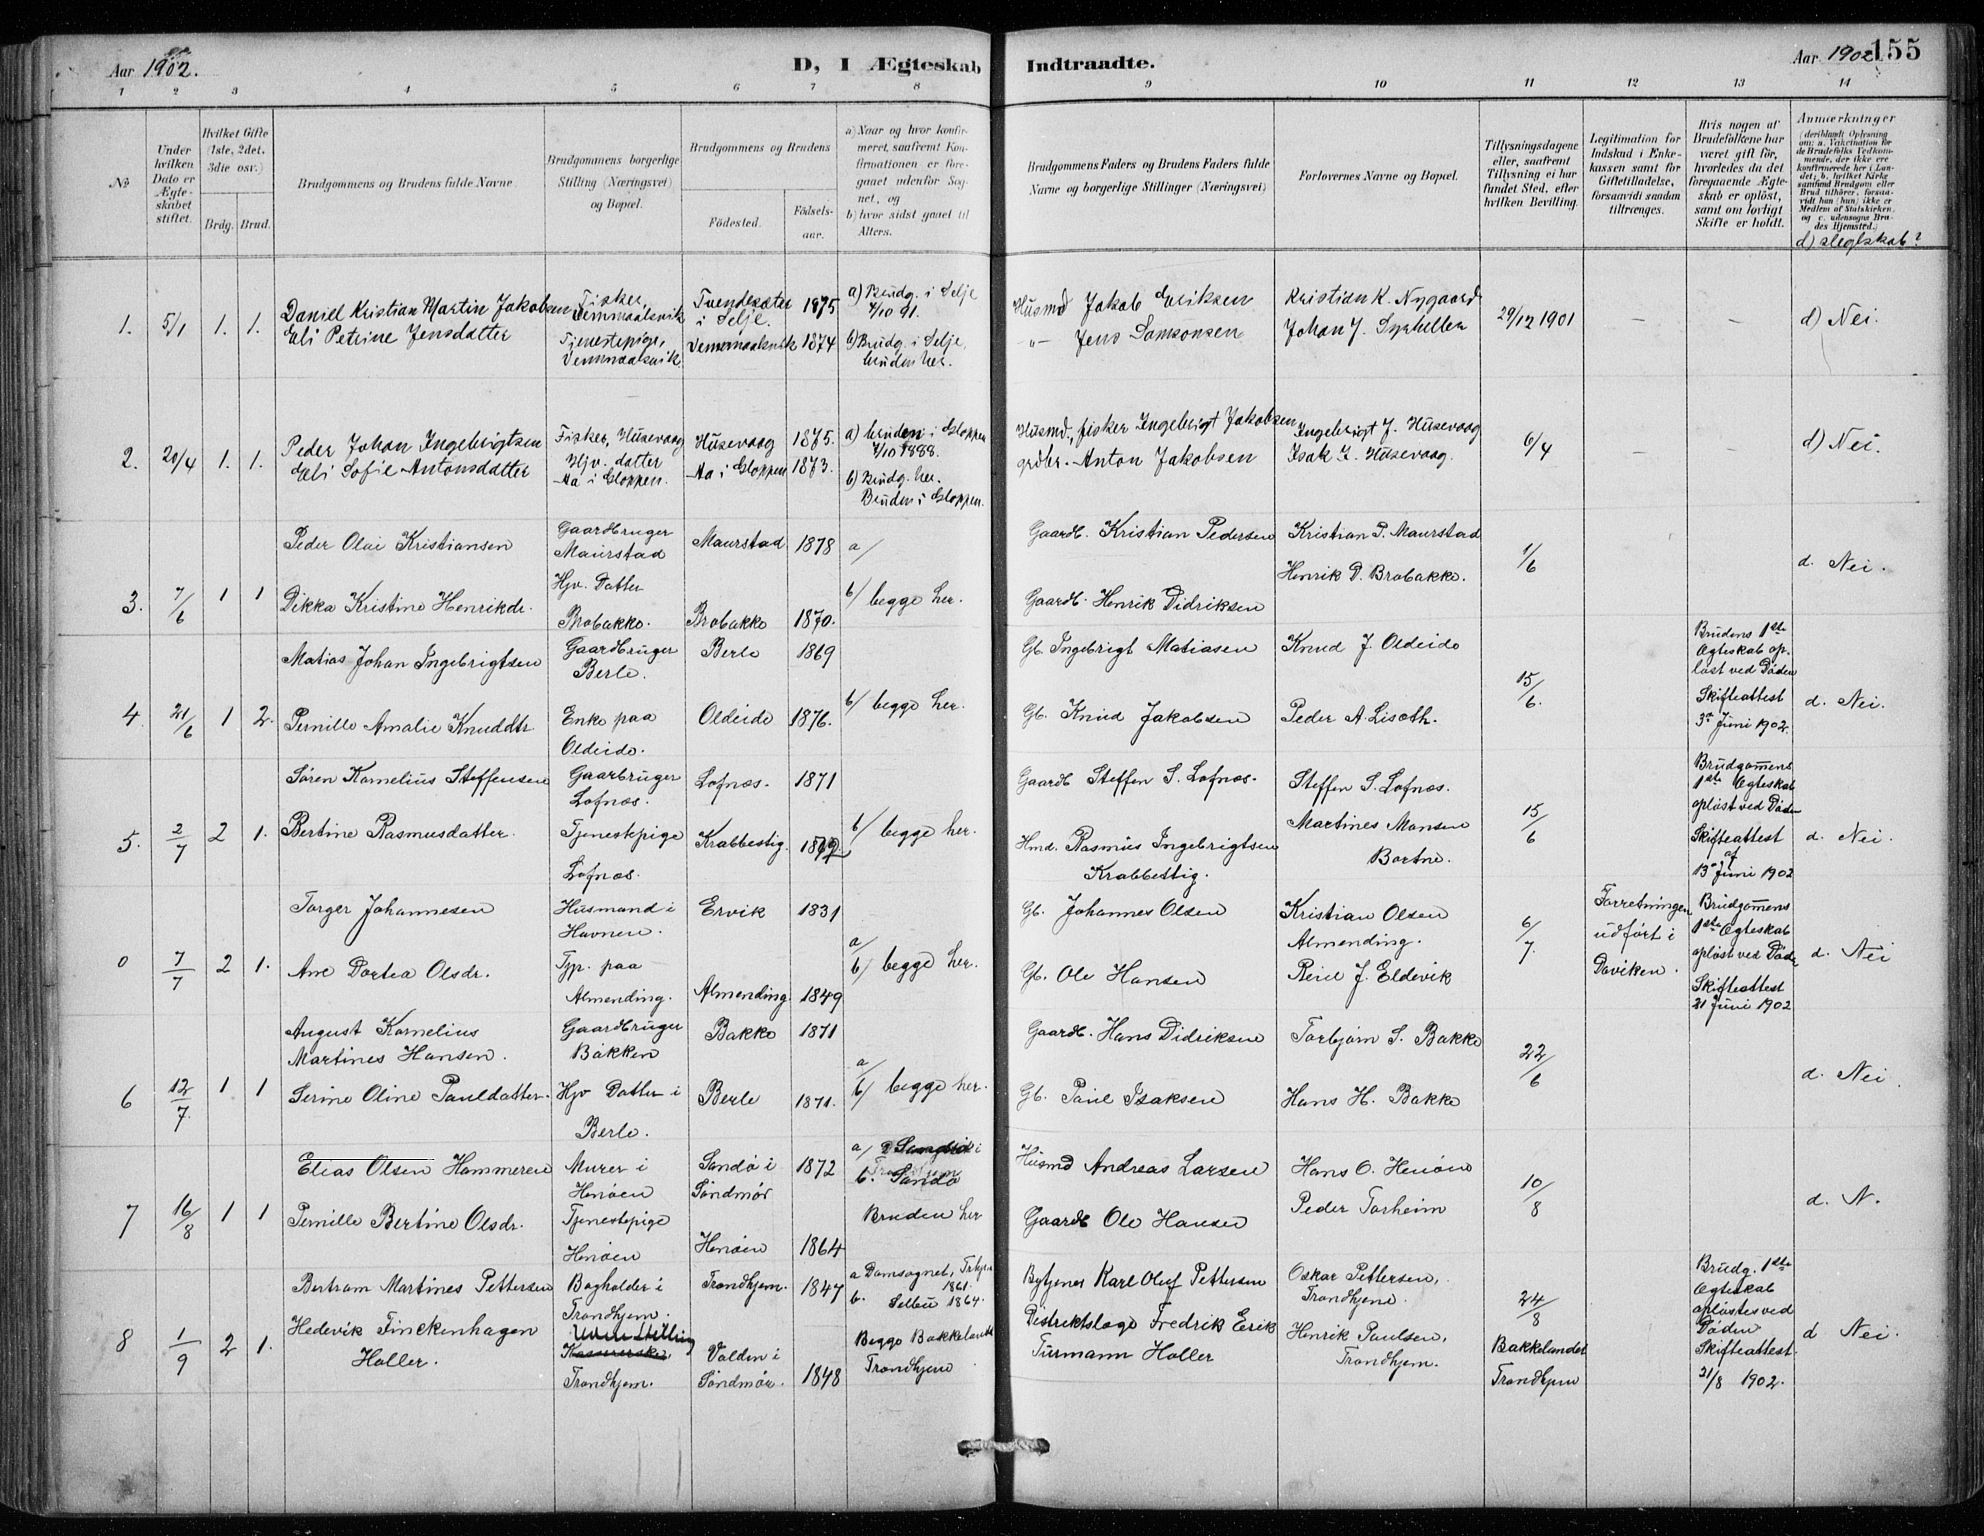 Aar 1902.
D, I Ægteskab Indtraadte.
Aar 1902
155
1 2 3 4 5 6 7 8 9 10 11 12 13 14
No
Under hvilken Dato er Ægteskabet stiftet.
Hvilket Gifte (1ste, 2det, 3die osv.)
Brdg. Brud.
Brudgommens og Brudens fulde Navne.
Brudgommens borgerlige Stilling (Næringsvei) og Bopæl.
Brudgommens og Brudens
Fødested. Fødselsaar.
a) Naar og hvor konfirmeret, saafremt Konfirmationen er foregaaet udenfor Sognet, og
b) hvor sidst gaaet til Alters.
Brudgommens Faders og Brudens Faders fulde Navne og borgerlige Stillinger (Næringsvei)
Forlovernes Navne og Bopæl.
Tillysningsdagene eller, saafremt Tillysning ei har fundet Sted, efter hvilken Bevilling.
Legitimation for Indskud i Enkekassen samt for Giftetilladelse, forsaavidt saadan tiltrænges.
Hvis nogen af Brudefolkene har været gift før, hvorledes da det foregaaende Ægteskab er opløst, samt om lovligt Skifte er holdt.
Anmærkninger
(deriblandt Oplysning om: a. Vaccination for de Brudefolks Vedkommende, der ikke ere konfirmerede her i Landet; b. hvilket Kirkesamfund Brudgom eller Brud tilhører, forsaavidt han (hun) ikke er Medlem af Statskirken, og c. udensogns Brudes Hjemsted.)
d) Slegtskab?
1. 5/1 1. 1. Daniel Kristian Martin Jakobsen Fisker, Vemmaalsvik Tvendesæter i Selje. 1875 a) Brudg. i Selje 4/10 91. Husmd Jakob Eriksen Kristian K. Nygaard 29/12 1901 – – d) Nei.
Eli Petrine Jensdatter Tjenestepige, Vemmaalsvik Vemmaalsvik 1874 b) Brudg. i Selje, bruden her. -"- Jens Samsonsen Johan J.
2. 20/4 1. 1. Peder Johan Ingebrigtsen Fisker, Husevaag Husevaag 1875. a) bruden i Gloppen 7/10 1888. Husmd., fisker Ingebrigt Jakobsen Ingebrigt J. Husevaag 6/4 – – d) Nei.
Eli Sofie Antonsdatter Hjv. datter Aa i Gloppen. Aa i Gloppen 1873. b) Brudg. her. Bruden i Gloppen. grdbr. Anton Jakobsen Isak I. Husevaag.
Peder Olai Kristiansen Gaardbruger Maurstad Maurstad 1878 a/ Gaardb. Kristian Pedersen Kristian P. Maurstad 1/6 d. Nei.
3. 7/6 1 1 Dikka Kristine Henrikdr. Hjv. Datter Brobakke. Brobakke 1870. b/ begge her. Gaardb. Henrik Didriksen Henrik D. Brobakke.
Matias Johan Ingebrigtsen Gaardbruger Berle. Berle 1869 Gb. Ingebrigt Matiasen Knud J. Oldeide 15/6. Brudens 1ste Ægteskab opløst ved Døden
4. 21/6 1 2. Pernille Amalie Knuddtr Enke paa Oldeide. Oldeide 1876. b/ begge her. Gb. Knud Jakobsen Peder A. Liseth. Skifteattest 3de Juni 1902. d. Nei.
Søren Kornelius Steffensen Gaarbruger Lofnæs. Lofnæs. 1871 Gaardb Steffen S. Lofnæs. Steffen S. Lofnæs. 15/6 Brudgomens 1ste Ægteskab opløst ved Døden
5. 2/7 2 1. Bertine Rasmusdatter. Tjenestepige Lofnæs. Krabbestig. b/ begge her. Hmd. Rasmus Ingebrigtsen Krabbestig. Martines Monsen Bortne. Skifteattest af 13de Juni 1902 d. Nei.
Torger Johannesen Husmand i Havnen. Ervik 1831 a/ Gb. Johannes Olsen Kristian Olsen Almending. 6/7. Forretningen udført i Daviken. Brudgomens 1ste Ægteskab opløst ved Døden
0 7/7 2 1. Ane Dortea Olsdr. Tjp. paa Almending. Almending. 1849 b/ begge her. Gb. Ole Hansen Reid J. Eldevik Skifteattest 21 Juni 1902 d. Nei
August Kornelius Martines Hansen. Gaardbruger Bakken Bakke 1871 a/ Gaardb. Hans Didriksen Torbjørn S. Bakke 22/6
6 12/7. 1 1 Serine Oline Pauldatter. Hjv Datter i Berle. Berle 1871. b/ begge her. Gb. Paul Isaksen Hans H. Bakke d. Nei.
Elias Olsen Hammeren Murer i Henøen Sandø i Søndmør 1872 a/ b. Sandø Husmd Andreas Larsen Hans O. Henøen 10/8
7 16/8 1 1 Pernille Bertine Olsdr. Tjenestepige Henøen Henøen 1864 Bruden her Gaardb Ole Hansen Peder Torheim d. N.
Bertram Martines Pettersen Bogholder i Trondhjem. Trondhjem. 1847 a Domsognet, Trhjem 1861. b. Selbu 1864. Bytjener Karl Oluf Pettersen Oskar Pettersen, Trondhjem. 24/8 Brudg. 1ste Ægteskab opløstes ved Døden
8 1/9 2 1. Hedevik Finckenhagen Holler. Uden Stilling Kassererske, Trondhjem. Volden i Søndmør. 1848 Begge Bakkelandet Trondhjem Distriktslæge Fredrik Eerik Turmann Holler Henrik Paulsen, Trondhjem. Bakkelandet Trondhjem Skifteattest 21/8 1902. d Nei.